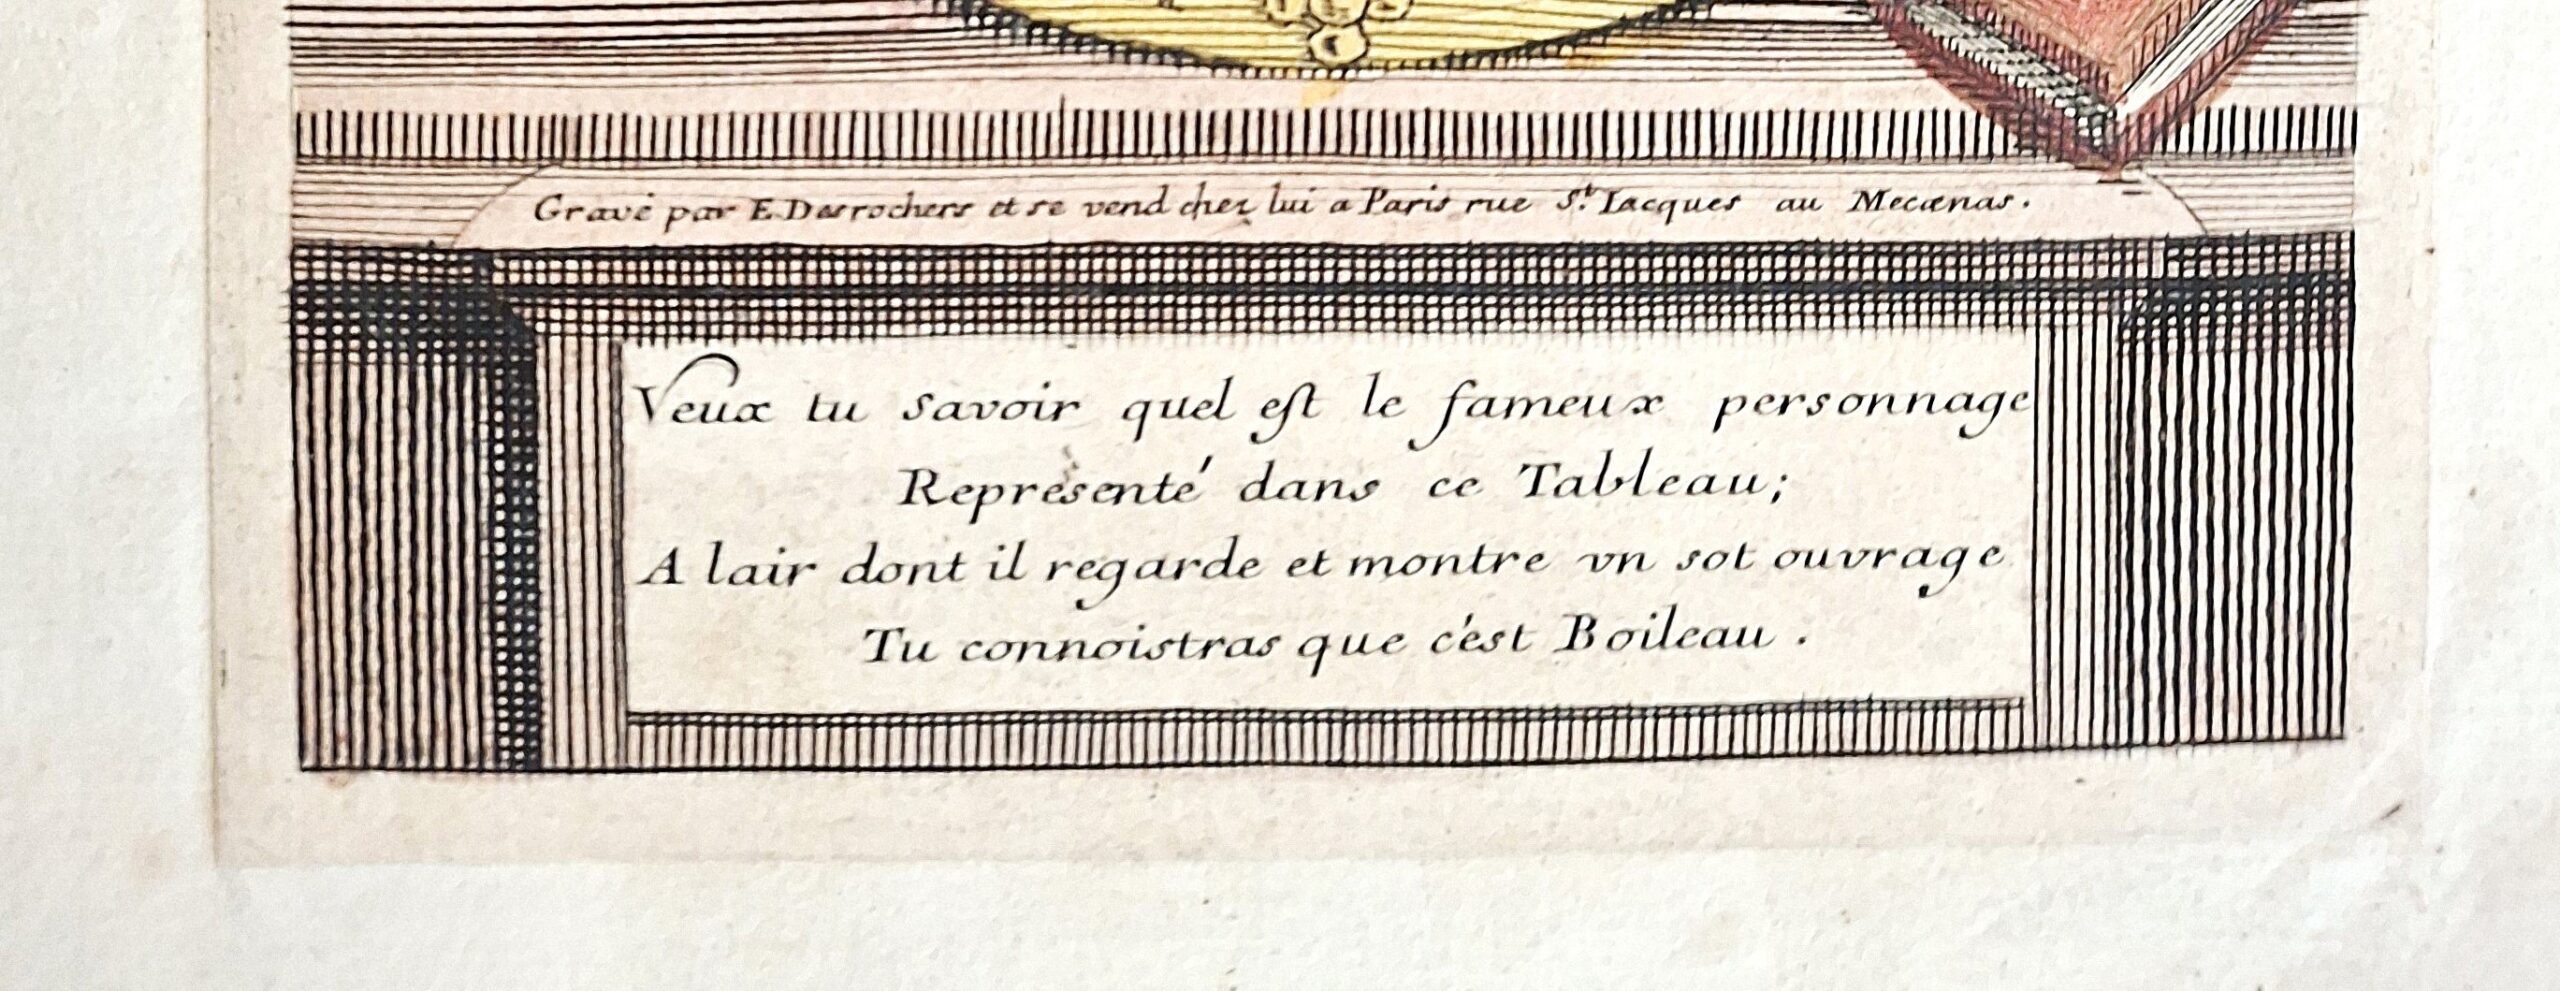 Gravé par E. Desrochers et se vend chez lui a Paris rue St. Iacques au Mecænas.
Veux tu savoir quel est le fameux personnage
Représenté dans ce Tableau;
A lair dont il regarde et montre vn sot ouvrage
Tu connoistras que c'est Boileau.